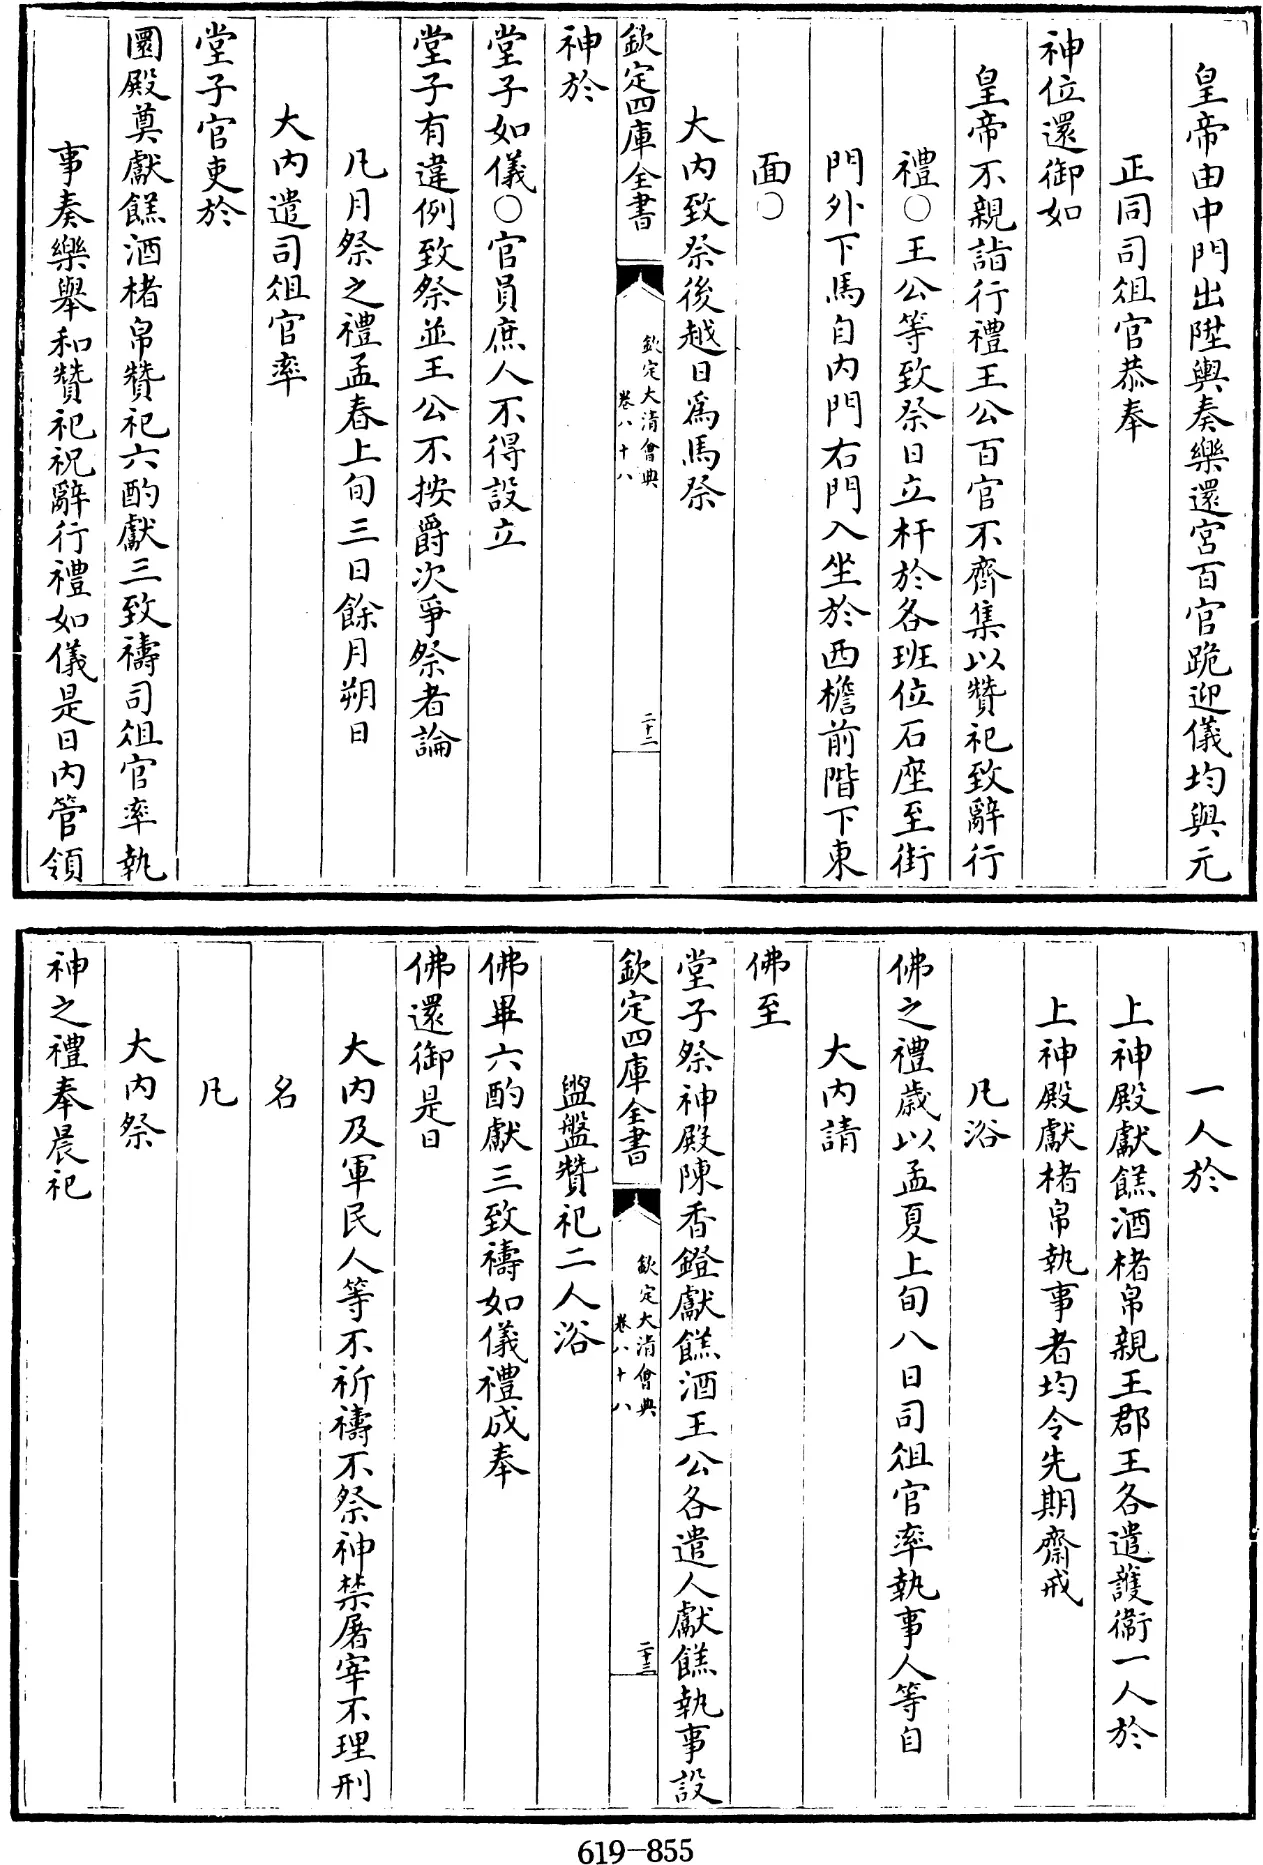 皇帝由中門出陞輿奏樂還宮百官跪迎儀均與元
正同司俎官恭奉
神位還御如
皇帝不親詣行禮王公百官不齊集以贊祀致辭行
禮○王公等致祭日立杆於各班位石座至街
門外下馬自内門右門入坐於西檐前階下東
面○
大内致祭後越日爲馬祭
欽定四庫全書
欽定大清會典
卷八十八
二十二
神於
堂子如儀○官員庶人不得設立
堂子有違例致祭並王公不按爵次爭祭者論
凡月祭之禮孟春上旬三日餘月朔日
大内遣司俎官率
堂子官吏於
圜殿奠獻餻酒楮帛贊祀六酌獻三致禱司俎官率執
事奏樂舉和贊祀祝辭行禮如儀是日内管領
一人於
上神殿獻餻酒楮帛親王郡王各遣護衛一人於
上神殿獻楮帛執事者均令先期齋戒
凡浴
佛之禮歲以孟夏上旬八日司俎官率執事人等自
大内請
佛至
堂子祭神殿陳香鐙獻餻酒王公各遣人獻餻執事設
欽定四庫全書
欽定大清會典
卷八十八
二十三
盥盤贊祀二人浴
佛畢六酌獻三致禱如儀禮成奉
佛還御是日
大内及軍民人等不祈禱不祭神禁屠宰不理刑
名
凡
大内祭
神之禮奉晨祀
619-855